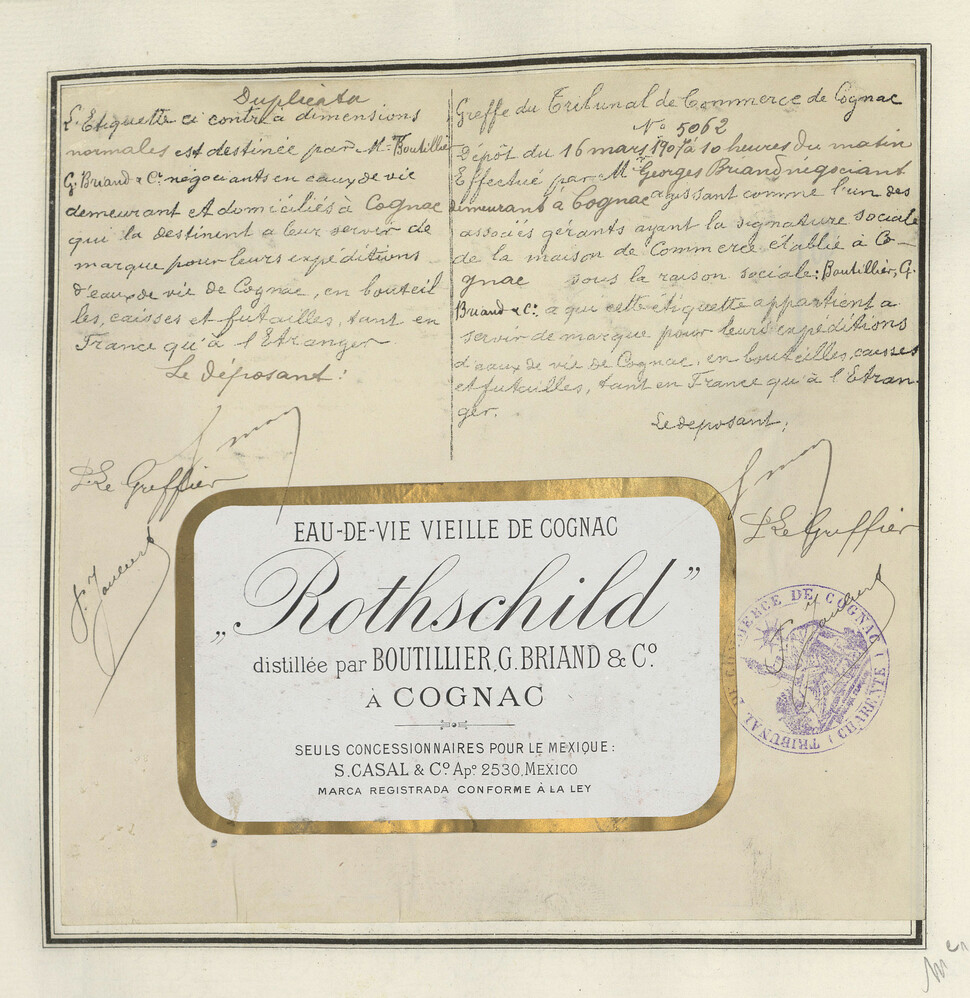 Duplicata
L'Etiquette ci contre a dimensions
normales est destinée par Mr Boutillier
G. Briand & Cie négociants en eaux de vie
demeurant et domiciliés à Cognac
qui la destinent a leur servir de
marque pour leurs expéditions
d'eaux de vie de Cognac, en bouteil
les, caisses et futailles, tant en
France qu'à l'Etranger
Le déposant:
Le Greffier
Greffe du Tribunal de Commerce de Cognac
No 5062
Dépôt du 16 mars 1907 à 10 heures du matin
Effectué par Mr Georges Briand négociant
demeurant à Cognac agissant comme l'un des
associés gérants ayant la signature sociale
de la maison de Commerce établie à Co-
gnac sous la raison sociale: Boutillier, G.
Briand & Cie a qui cette etiquette appartient a
servir de marque pour leurs expéditions
d'eaux de vie de Cognac, en bouteilles, caisses
et futailles, tant en France qu'à l'Etran-
ger.
Le deposant:
Le Greffier
EAU-DE-VIE VIEILLE DE COGNAC
„Rothschild”
distillée par BOUTILLIER, G. BRIAND & Co.
À COGNAC
SEULS CONCESSIONNAIRES POUR LE MEXIQUE:
S. CASAL & Co. Apo 2530, MEXICO
MARCA REGISTRADA CONFORME À LA LEY
TRIBUNAL DE COMMERCE DE COGNAC
(CHARENTE)